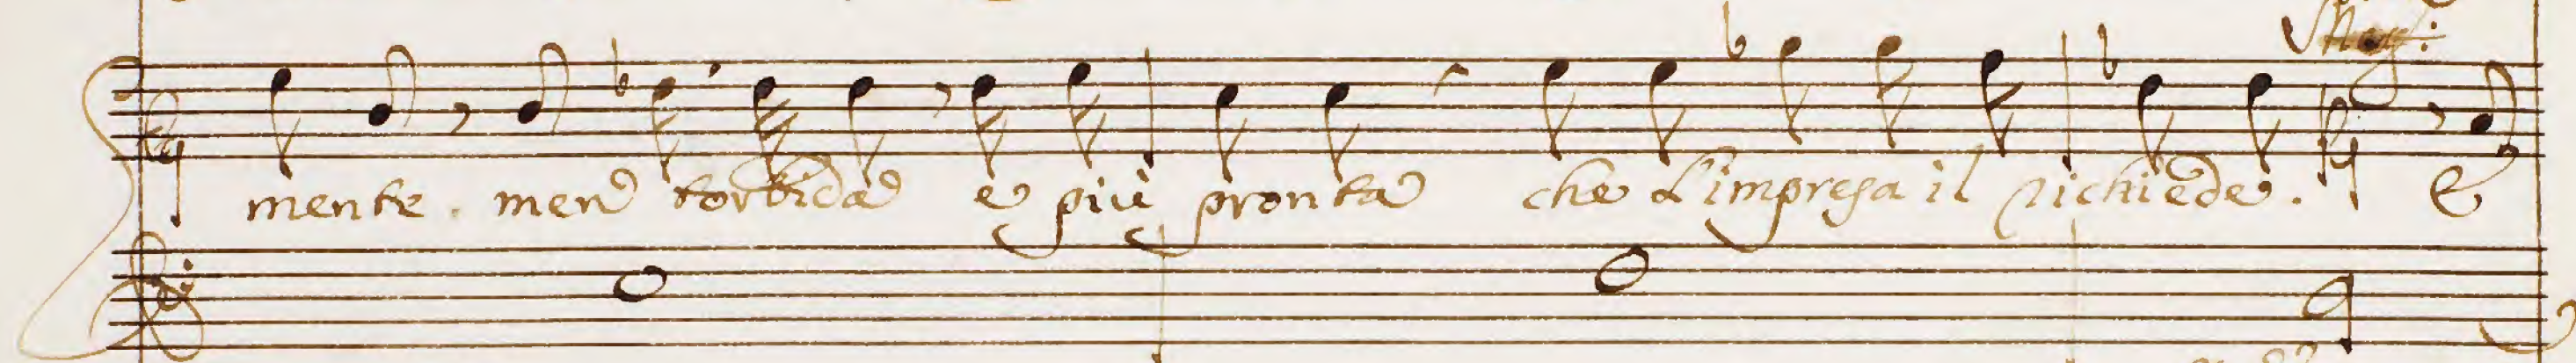 mente. men torbida e più pronta che L'impresa il richiede. E